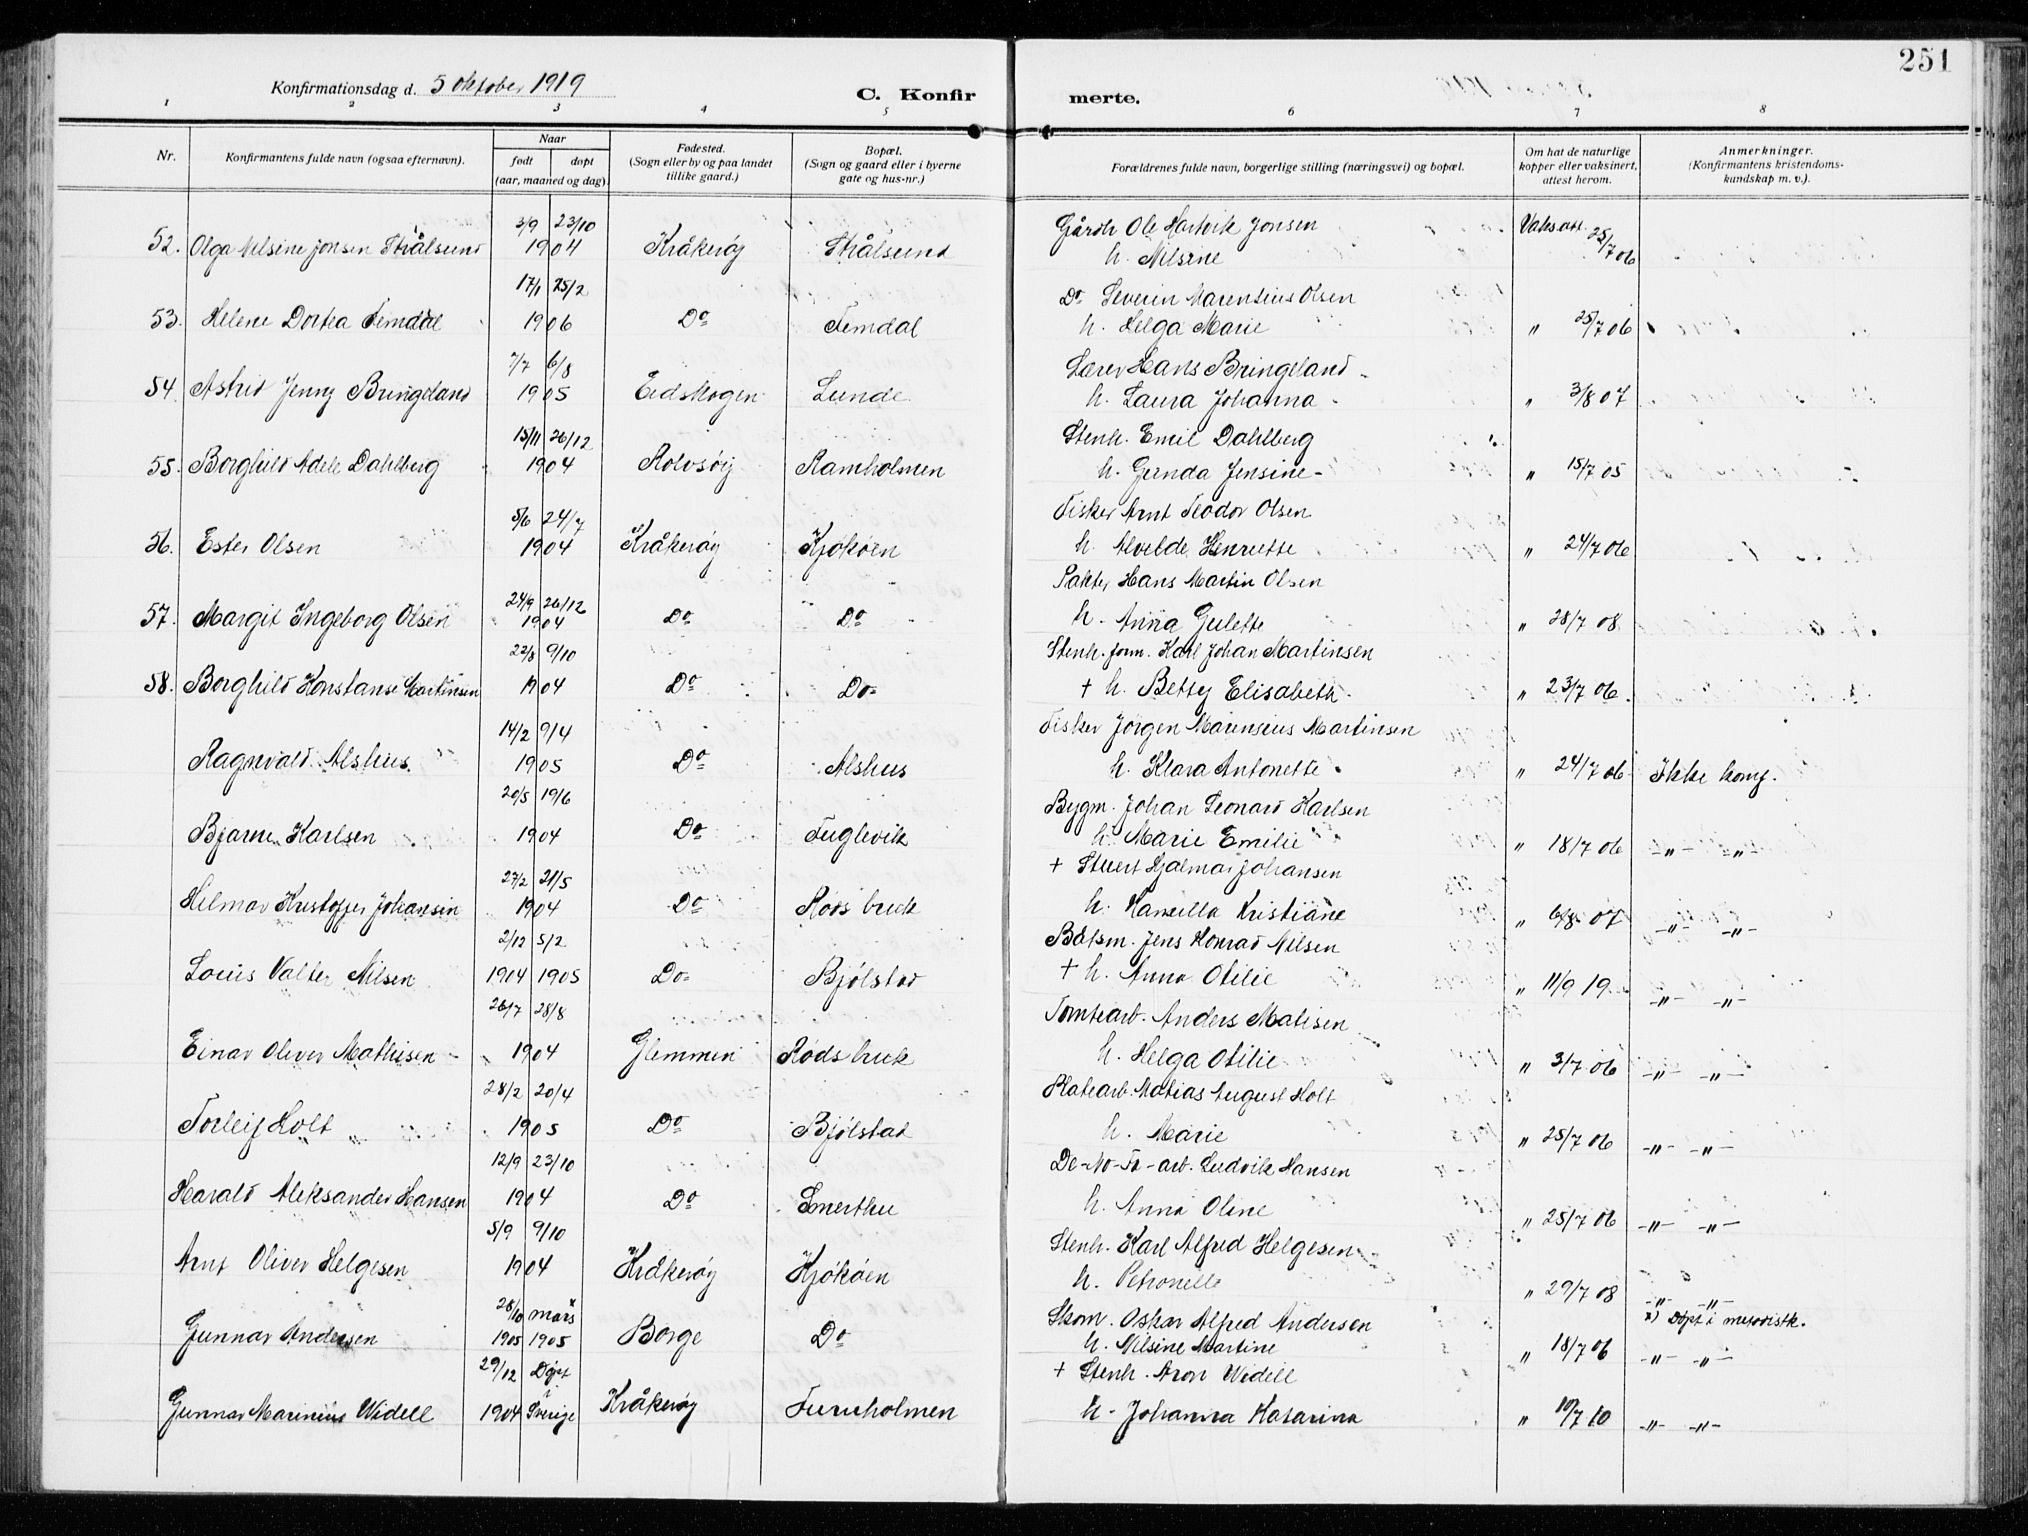 251
Konfirmationsdag d. 5 oktober 1919
C. Konfirmerte.
1 2 3 4 5 6 7 8
Nr.
Konfirmantens fulde navn (ogsaa efternavn).
Naar
født døpt
(aar, maaned og dag).
Fødested.
(Sogn eller by og paa landet
tillike gaard.)
Bopæl.
(Sogn og gaard eller i byerne
gate og hus-nr.)
Forældrenes fulde navn, borgerlige stilling (næringsvei) og bopæl.
Om hat de naturlige
kopper eller vaksinert,
attest herom.
Anmerkninger.
(Konfirmantens kristendoms-
kundskap m. v.).
3/9 23/10 Gårdbr Ole Hartvik Jonsen Vaks.att.
52. Olga Nilsine Jonsen Strålsund 1904 Kråkerøy Strålsund h. Nilsine 25/7 06
17/1 25/2 Do Severin Marentius Olsen
53. Helene Dortea Femdal 1906 Do Femdal h. Helga Marie " 25/7 06
7/7 6/8 Lærer Hans Bringeland
54 Astrid Jenny Bringeland 1905 Eidskogen Lunde h. Laura Johanna " 3/8 07
15/11 26/12 Stenh. Emil Dahlberg
55. Borghild Adele Dahlberg 1904 Rolvsøy Ramholmen h. Gerda Jensine " 15/7 05
5/6 24/7 Fisker Arnt Teodor Olsen
56. Ester Olsen 1904 Kråkerøy Kjøkøen h. Alvilde Henriette " 24/7 06
Pakter Hans Martin Olsen
24/9 26/12
57. Margit Ingeborg Olsen 1904 Do Do h. Anna Gulette " 28/7 08
22/8 9/10 Stenh. form. Karl Johan Martinsen
58. Borghild Konstanse Martinsen 1904 Do Do + h. Betty Elisabeth " 23/7 06
14/2 9/4 Fisker Jørgen Marensius Martinsen
Ragnvald Alshus 1905 Do Alshus h. Klara Antonette " 24/7 06 Ikke komf.
20/5 19/6 Bygm. Johan Leonard Karlsen
Bjarne Karlsen 1904 Do Fuglevik h. Marie Emilie " 18/7 06 -"- -"-
27/2 21/5 + Stuert Hjalmar Johansen
Hilmar Kristoffer Johansen 1904 Do Røds bruk h. Kamilla Kristiane " 6/8 07 -"- -"-
2/12 5/2 Båtsm. Jens Konrad Nilsen
Louis Valter Nilsen 1904 1905 Do Bjølstad + h. Anna Otilie " 11/9 19 -"- -"-
26/7 28/8 Tomtearb. Anders Matisen
Einar Oliver Mathisen 1904 Glemmen Røds bruk h. Helga Otilie " 3/7 06 -"- -"-
28/2 20/4 Platearb. Matias August Holt
Torleif Holt 1905 Do Bjølstad h. Marie " 25/7 06 -"- -"-
12/9 23/10 De-No-Fa-arb. Ludvik Hansen
Harald Aleksander Hansen 1904 Do Smerthu h. Anna Oline " 25/7 06 -"- -"-
5/9 9/10 Stenh. Karl Alfred Helgesen
Arnt Oliver Helgesen 1904 Kråkerøy Kjøkøen h. Petronelle " 29/7 08 -"- -"-
28/10 mars x Skom. Oskar Alfred Andersen x) Døpt i metodistk.
Gunnar Andersen 1905 1905 Borge Do h. Nilsine Martine " 18/7 06 -"- -"-
29/12 Døpt i + Stenh. Aron Widell
Gunnar Marinius Widell 1904 Sverige Kråkerøy Furuholmen h. Johanna Katarina " 10/7 10 -"- -"-